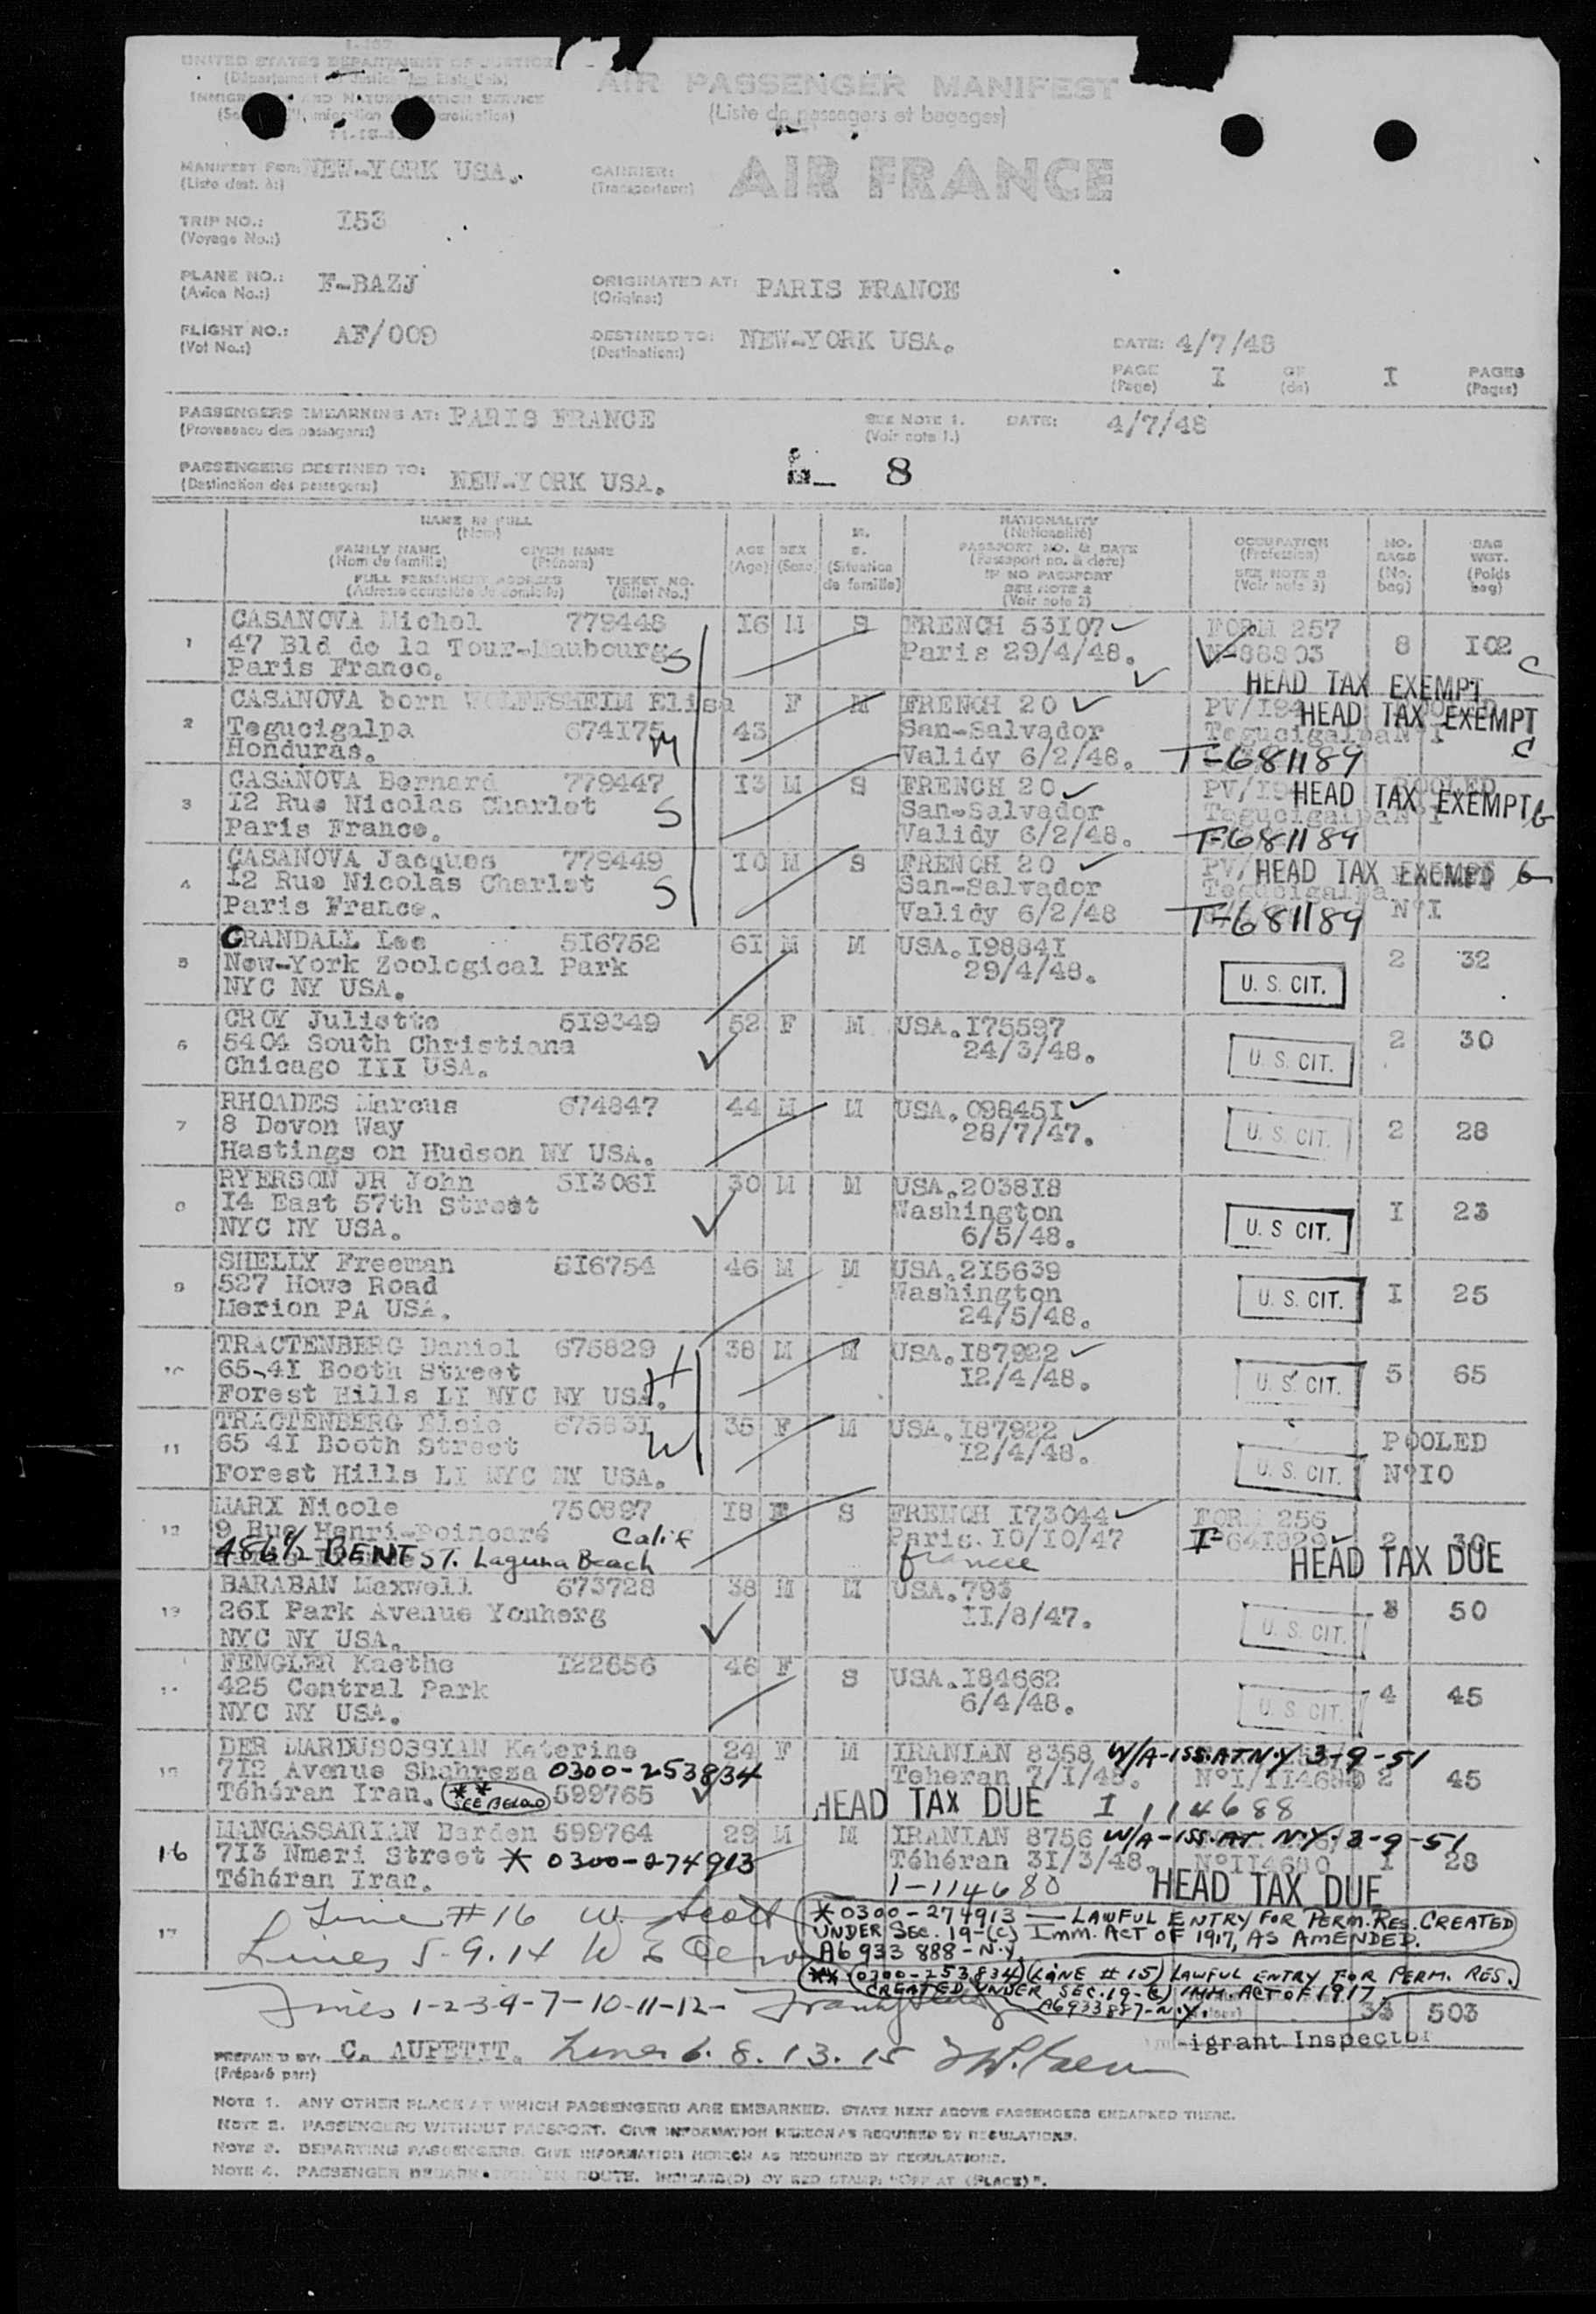 UNITED STATES DEPARTMENT OF JUSTICE
AIR PASSENGER MANIFEST
(Liste de passagers et bagages)
MANIFEST FOR: NEW-YORK USA.
(Liste dest. à:)
CARRIER: AIR FRANCE
(Transporteur:)
TRIP NO.: I53
(Voyage No.:)
PLANE NO.: F-BAZJ
(Avion No.:)
ORIGINATED AT: PARIS FRANCE
(Origine:)
FLIGHT NO.: AF/009
(Vol No.:)
DESTINED TO: NEW-YORK USA.
(Destination:)
DATE: 4/7/48
PAGE I OF I PAGES
(Page) (de) (Pages)
PASSENGERS EMBARKING AT: PARIS FRANCE
SEE NOTE 1. DATE: 4/7/48
(Provenance des passagers:) (Voir note 1.)
PASSENGERS DESTINED TO: NEW-YORK USA.
(Destination des passagers:)
8
NAME IN FULL
(Nom)
FAMILY NAME GIVEN NAME
(Nom de famille) (Prénom)
FULL PERMANENT ADDRESS TICKET NO.
(Adresse complète du domicile) (Billet No.)
AGE
(Age)
SEX
(Sexe)
M.
S.
(Situation
de famille)
NATIONALITY
(Nationalité)
PASSPORT NO. & DATE
(Passeport no. & date)
IF NO PASSPORT
SEE NOTE 2
(Voir note 2)
OCCUPATION
(Profession)
SEE NOTE 3
(Voir note 3)
NO.
BAGS
(No.
bag)
BAG
WGT.
(Poids
bag)
1 CASANOVA Michel 779448 16 M S FRENCH 53I07 FORM 257 8 I02
47 Bld de la Tour-Maubourg S Paris 29/4/48. N-88803
Paris France. HEAD TAX EXEMPT C
2 CASANOVA born WOLFFSHEIM Elisa F M FRENCH 20 PV/I94
Tegucigalpa 674I75 M 43 San-Salvador Tegucigalpa N°I HEAD TAX EXEMPT
Honduras. Validy 6/2/48. T-681189 C
3 CASANOVA Bernard 779447 I3 M S FRENCH 20 POOLED
I2 Rue Nicolas Charlet S San-Salvador Tegucigalpa N°I HEAD TAX EXEMPT
Paris France. Validy 6/2/48. T-681189
4 CASANOVA Jacques 779449 I0 M S FRENCH 20 PV/ HEAD TAX EXEMPT
I2 Rue Nicolas Charlet S San-Salvador Tegucigalpa
Paris France. Validy 6/2/48 T-681189 N°I
5 CRANDALL Lee 5I6752 6I M M USA.I98841 2 32
New-York Zoological Park 29/4/48.
NYC NY USA. U. S. CIT.
6 CROY Juliette 5I9349 52 F M USA.I75597 2 30
5404 South Christiana 24/3/48.
Chicago III USA. U. S. CIT.
7 RHOADES Marcus 674847 44 M M USA.09845I
8 Devon Way 28/7/47. U. S. CIT. 2 28
Hastings on Hudson NY USA.
8 RYERSON JR John 5I306I 30 M M USA.2038I8
I4 East 57th Street Washington I 23
NYC NY USA. 6/5/48. U. S CIT.
9 SHELLY Freeman 5I6754 46 M M USA.2I5639
527 Howe Road Washington I 25
Merion PA USA. 24/5/48. U. S. CIT.
10 TRACTENBERG Daniel 675829 38 M M USA.I87922
65-4I Booth Street H I2/4/48. U. S. CIT. 5 65
Forest Hills LI NYC NY USA.
11 TRACTENBERG Elsie 67583I 35 F M USA.I87922
65 4I Booth Street W I2/4/48. POOLED
Forest Hills LI NYC NY USA. U. S. CIT. N°I0
12 MARX Nicole 750897 I8 F S FRENCH I73044 FORM 256
9 Rue Henri-Poincaré Calif Paris.I0/I0/47 I-641829 2 30
486½ BENT ST. Laguna Beach france HEAD TAX DUE
13 BARABAN Maxwell 673728 38 M M USA.793
26I Park Avenue Yonherg II/8/47. 50
NYC NY USA. U. S. CIT.
FENGLER Kaethe I22656 46 F S USA.I84662
425 Central Park 6/4/48. 4 45
NYC NY USA. U. S. CIT.
15 DER MARDUSOSSIAN Katerine 24 F M IRANIAN 8358 W/A-ISS. AT N.Y 3-9-51
7I2 Avenue Shahreza 0300-253834 Teheran 7/I/48. 2 45
Téhéran Iran. ** SEE BELOW 599765 HEAD TAX DUE I 114688
16 MANGASSARIAN Barden 599764 29 M M IRANIAN 8756 W/A-ISS. AT N.Y. 3-9-51
7I3 Nmeri Street * 0300-274913 Téhéran 3I/3/48. N°II4680 I 28
Téhéran Iran. I-114680 HEAD TAX DUE
17 Line #16 W. Scott
* 0300-274913 — LAWFUL ENTRY FOR PERM. RES. CREATED
UNDER SEC. 19-(C) IMM. ACT OF 1917, AS AMENDED.
A6 933 888-N.Y.
Lines 5-9.14
** (0300-253834) (LINE #15) LAWFUL ENTRY FOR PERM. RES.
CREATED UNDER SEC. 19-(C) IMM. ACT OF 1917
A6933887-N.Y.
Lines 1-2-3-4-7-10-11-12-
33 503
igrant Inspector
PREPARED BY: C. AUPETIT. Lines 6. 8. 13. 15
(Préparé par:)
NOTE 1. ANY OTHER PLACE AT WHICH PASSENGERS ARE EMBARKED. STATE NEXT ABOVE PASSENGERS EMBARKED THERE.
NOTE 2. PASSENGERS WITHOUT PASSPORT. GIVE INFORMATION HEREON AS REQUIRED BY REGULATIONS.
NOTE 3. DEPARTING PASSENGERS. GIVE INFORMATION HEREON AS REQUIRED BY REGULATIONS.
NOTE 4. PASSENGER ROUTE. INDICATE(D) BY RED STAMP: "OFF AT (PLACE)".